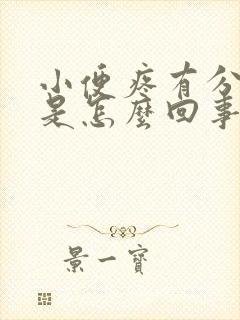 小便疼有分
是怎麼回事
景一寶